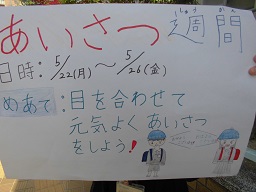 あいさつ週間
日時:5/22(月)～5/26(金)
めあて:目を合わせて
元気よくあいさつ
をしよう!